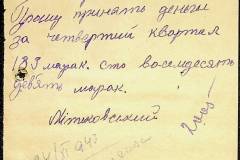 Прошу принять деньги
за четвертий квартал
183 марак. сто восемдесять
девять марак.
Мітковський